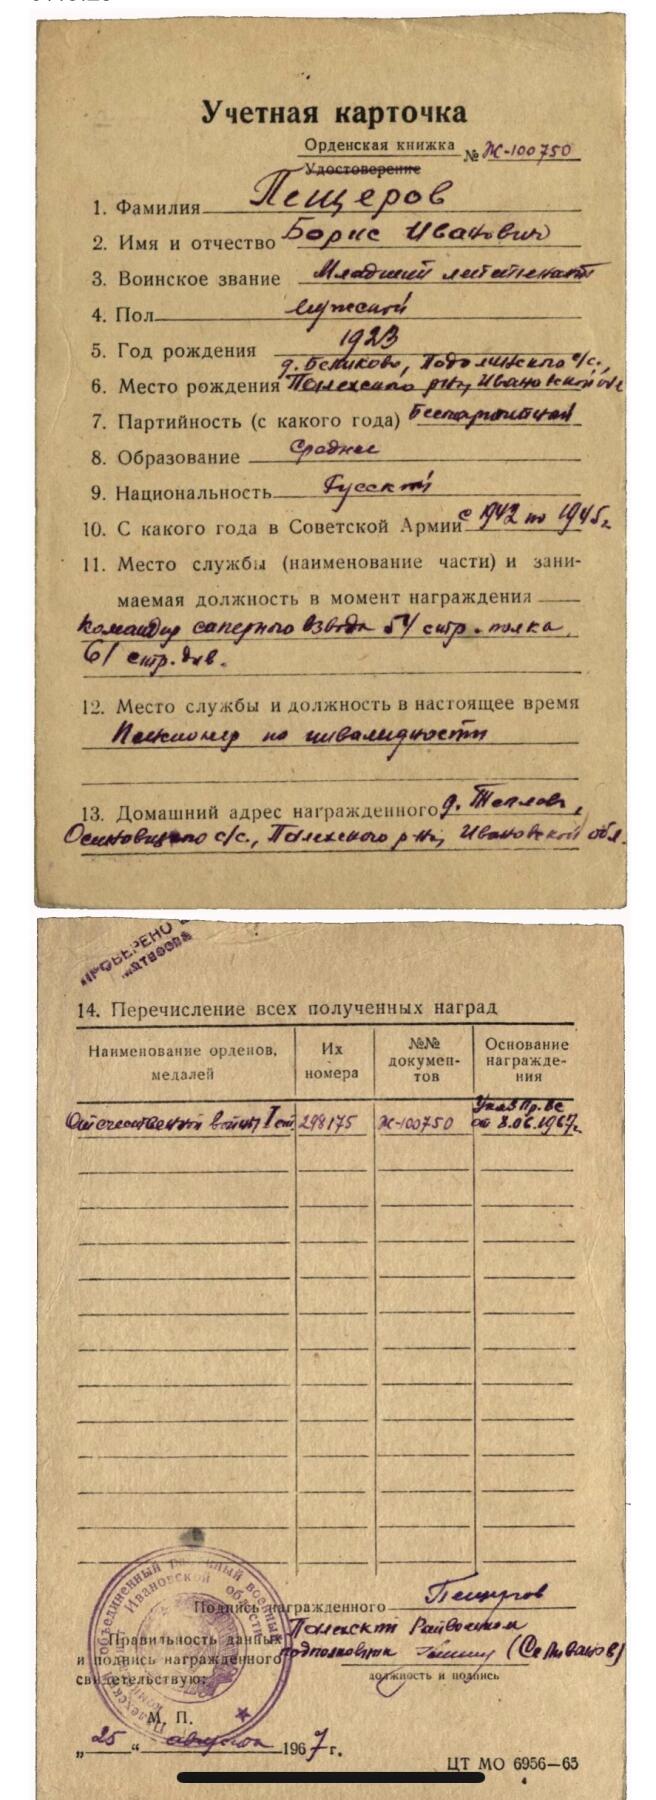 Учетная карточка
Орденская книжка № Ж-100750
Удостоверение
1. Фамилия Пещеров
2. Имя и отчество Борис Иванович
3. Воинское звание Младший лейтенант
4. Пол мужской
5. Год рождения 1923
д. Беликово, Подолинского с/с.,
6. Место рождения Палехского р-на, Ивановской обл
7. Партийность (с какого года) Беспартийный
8. Образование Среднее
9. Национальность Русский
10. С какого года в Советской Армии с 1942 по 1945г.
11. Место службы (наименование части) и зани-
маемая должность в момент награждения
Командир саперного взвода 54 стр. полка
61 стр. див.
12. Место службы и должность в настоящее время
Пенсионер по инвалидности
13. Домашний адрес награжденного д.
с/с., Палехского р-на, Ивановской обл.
ПРОВЕРЕНО
14. Перечисление всех полученных наград
Наименование орденов, медалей
Их номера
№№ докумен-тов
Основание награжде-ния
Отечественной войны I ст. 298175 Ж-100750 Указ Пр. ВС от 8.06.1967г.
Подпись награжденного Пещеров
Правильность данных Палехский Райвоенком
и подпись награжденного подполковник (Селиванов)
свидетельствую: должность и подпись
М. П.
„25“ августа 1967 г.
ЦТ МО 6956—65